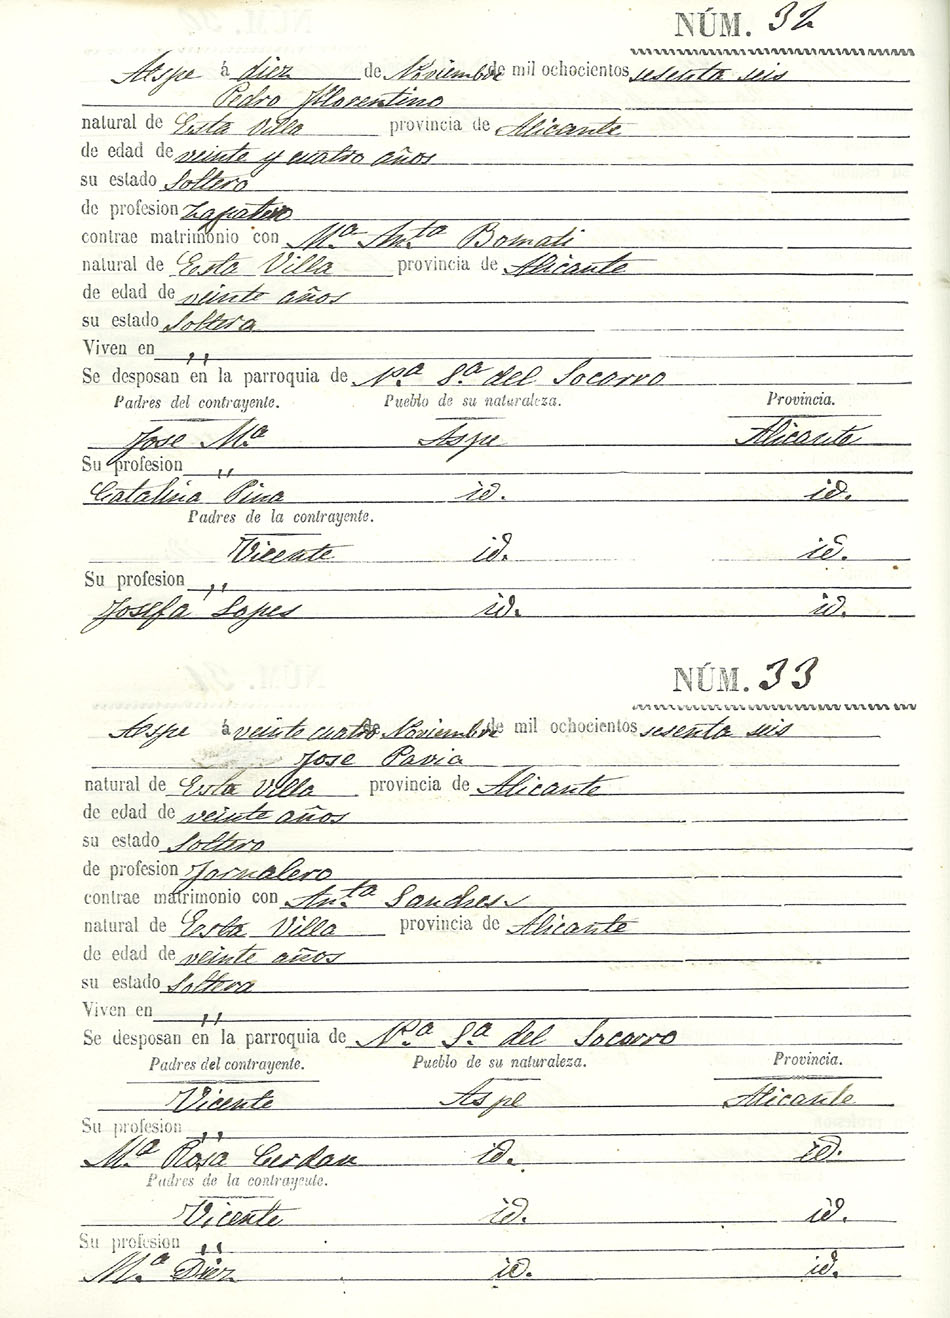 NÚM. 32
Aspe á diez de Noviembre de mil ochocientos sesenta seis
Pedro Florentino
natural de Esta Villa provincia de Alicante
de edad de veinte y cuatro años
su estado Soltero
de profesion Zapatero
contrae matrimonio con Mª Anta Bomati
natural de Esta Villa provincia de Alicante
de edad de veinte años
su estado Soltera
Viven en ,,
Se desposan en la parroquia de Nª Sª del Socorro
Padres del contrayente. Pueblo de su naturaleza. Provincia.
Jose Mª Aspe Alicante
Su profesion ,,
Catalina Pina id. id.
Padres de la contrayente.
Vicente id. id.
Su profesion ,,
Josefa Lopes id. id.
NÚM. 33
Aspe á veinte cuatro de Noviembre de mil ochocientos sesenta seis
Jose Pavia
natural de Esta Villa provincia de Alicante
de edad de veinte años
su estado Soltero
de profesion Jornalero
contrae matrimonio con Anta
natural de Esta Villa provincia de Alicante
de edad de veinte años
su estado Soltera
Viven en ,,
Se desposan en la parroquia de Nª Sª del Socorro
Padres del contrayente. Pueblo de su naturaleza. Provincia.
Vicente Aspe Alicante
Su profesion ,,
Mª Rosa Cerdan id. id.
Padres de la contrayente.
Vicente id. id.
Su profesion ,,
Mª Diez id. id.